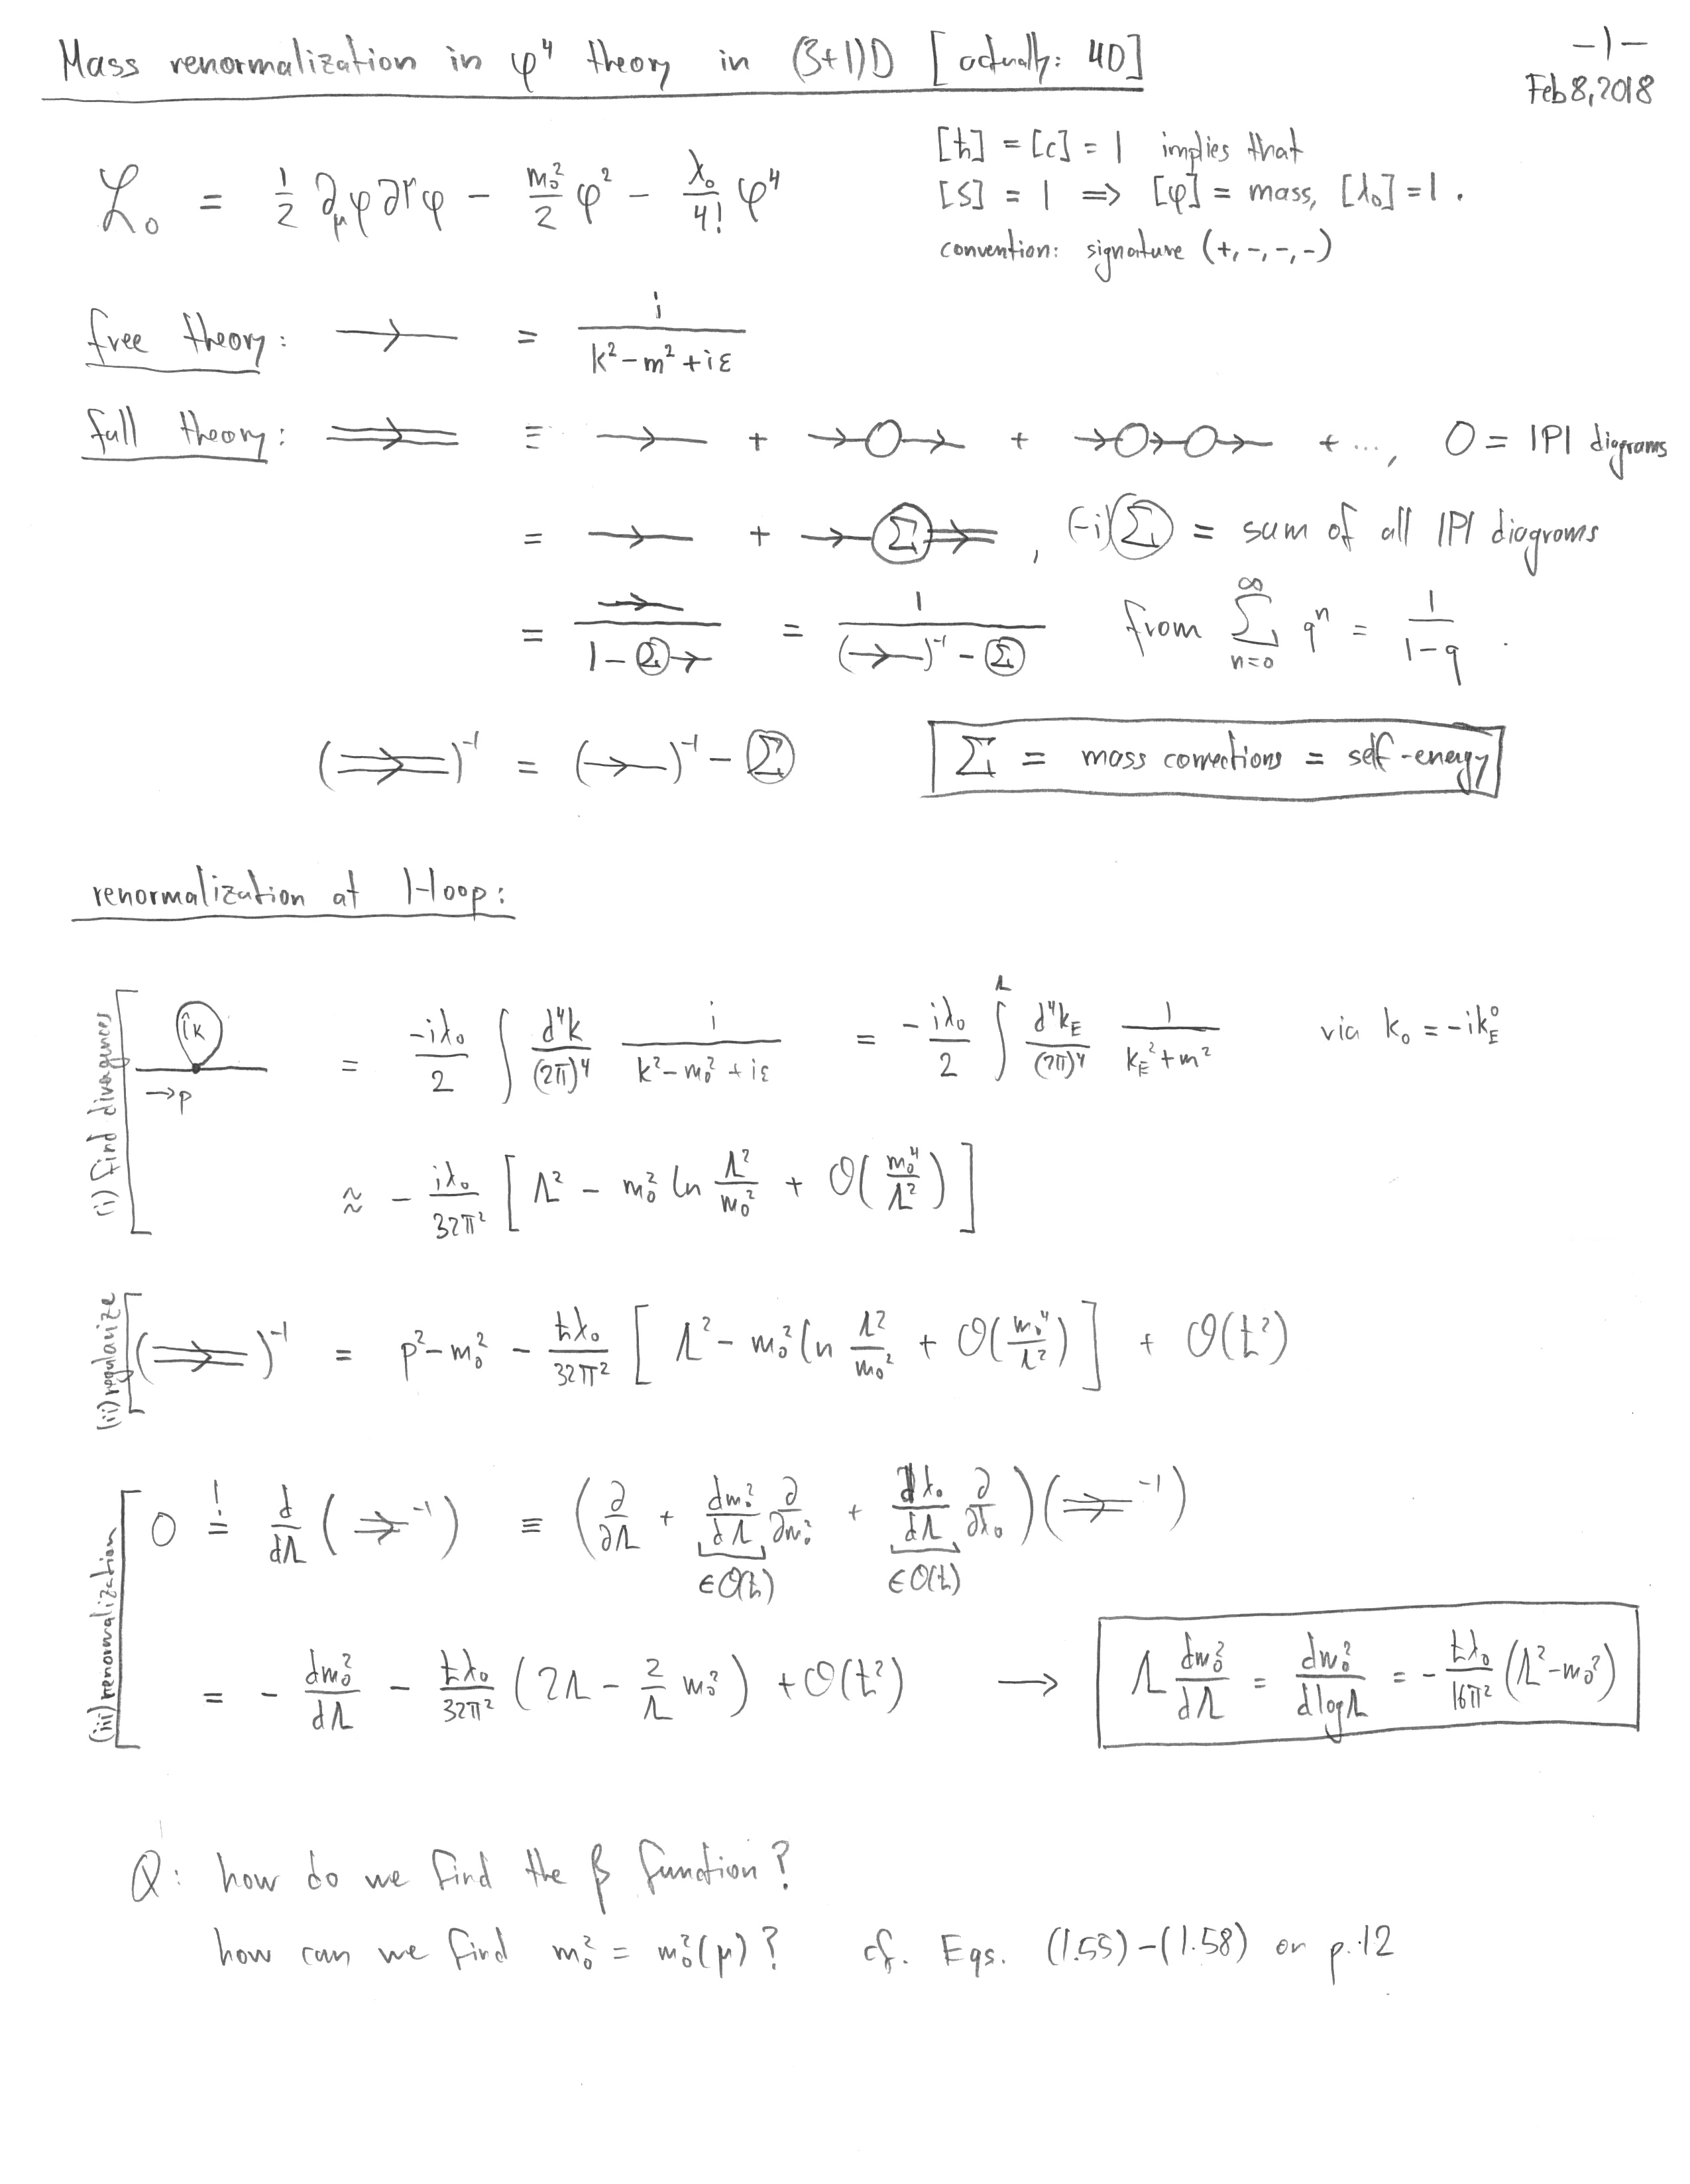 Mass renormalization in φ⁴ theory in (3+1)D [actually: 4D]
-1-
Feb 8, 2018
ℒ₀ = 1/2 ∂_μφ∂^μφ - m₀²/2 φ² - λ₀/4! φ⁴
[ħ] = [c] = 1 implies that
[S] = 1 ⇒ [φ] = mass, [λ₀] = 1.
convention: signature (+,-,-,-)
free theory: → = i/(k²-m²+iε)
full theory: ⇒ ≡ → + →O→ + →O→O→ + ..., O = 1PI diagrams
= → + →Σ⇒, (-i)Σ = sum of all 1PI diagrams
= →/(1-Σ→) = 1/((→)⁻¹ - Σ) from ∑_{n=0}^∞ qⁿ = 1/(1-q).
(⇒)⁻¹ = (→)⁻¹ - Σ
Σ = mass corrections = self-energy
renormalization at 1-loop:
(i) find divergences
↑k
→p
= -iλ₀/2 ∫ d⁴k/(2π)⁴ i/(k²-m₀²+iε) = - iλ₀/2 ∫^Λ d⁴k_E/(2π)⁴ 1/(k_E²+m²) via k₀ = -ik_E⁰
≈ - iλ₀/32π² [Λ² - m₀² ln Λ²/m₀² + O(m₀⁴/Λ²)]
(ii) regularize
(⇒)⁻¹ = p²-m₀² - ħλ₀/32π² [Λ² - m₀² ln Λ²/m₀² + O(m₀⁴/Λ²)] + O(ħ²)
(iii) renormalization
0 =! d/dΛ (⇒⁻¹) ≡ (∂/∂Λ + dm₀²/dΛ ∂/∂m₀² + dλ₀/dΛ ∂/∂λ₀)(⇒⁻¹)
∈O(ħ) ∈O(ħ)
= - dm₀²/dΛ - ħλ₀/32π² (2Λ - 2/Λ m₀²) + O(ħ²) → Λ dm₀²/dΛ = dm₀²/dlogΛ = - ħλ₀/16π² (Λ²-m₀²)
Q: how do we find the β function?
how can we find m₀² = m₀²(μ)? cf. Eqs. (1.55)-(1.58) on p.12